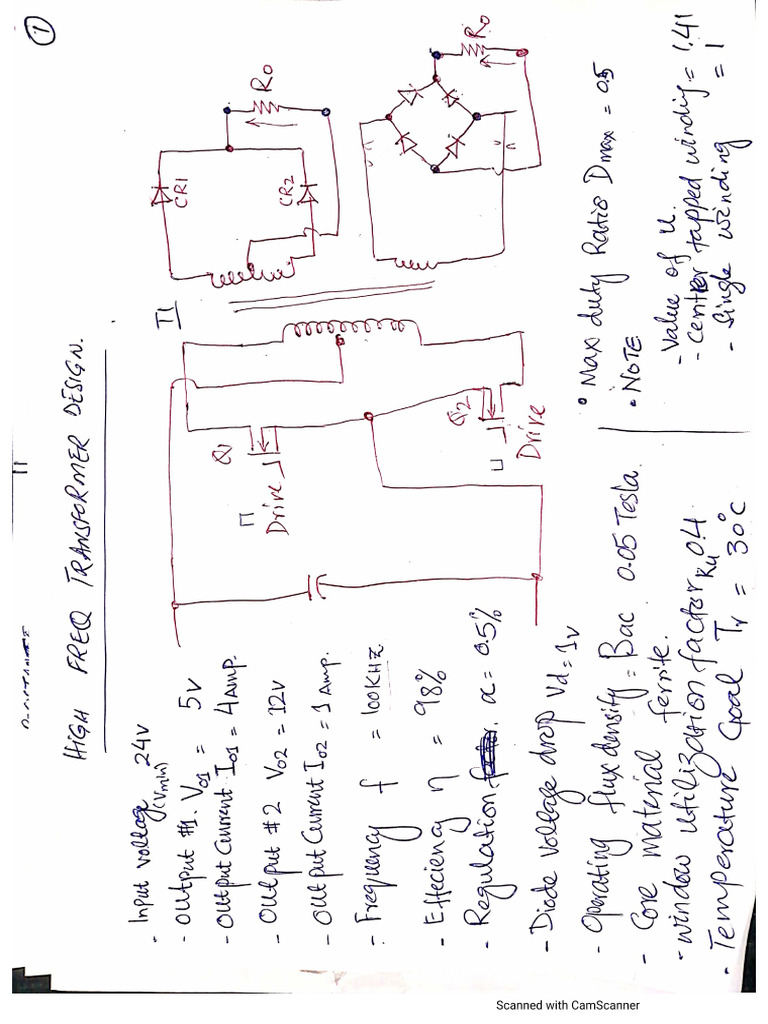 ①
HIGH FREQ TRANSFORMER DESIGN.
- Input voltage (Vmin) 24V
- output #1. Vo1 = 5V
- output current Io1 = 4 Amp.
- output #2 Vo2 = 12V
- output current Io2 = 1 Amp.
- Frequency f = 100KHz
- Effeciency η = 98%
- Regulation α = 0.5%
- Diode voltage drop Vd = 1V
- Operating flux density = Bac 0.05 Tesla.
- Core material ferrite.
- window utilization factor Ku 0.4
- Temperature Goal Tr = 30°C
T1
Q1
Drive
Q2
Drive
CR1
CR2
Ro
Ro
• Max duty Ratio Dmax = 0.5
• NOTE
- Value of U.
- Center tapped winding = 1.41
- Single winding = 1
Scanned with CamScanner